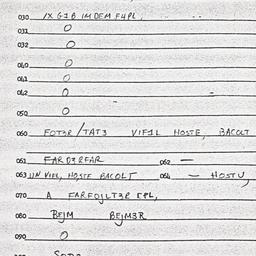 030 1X GIB IMDEM F4PL,
031 O
032 O
040 O
041 O
042 O
050 O
060 FOT3R/TAT3 VIF1L HOSTE, BACOLT
061 FARD3RFAR 062 —
063 UN VIEL, HOSTE BACOLT 064 — HOSTU,
070 A FARFOJLT3R EPL,
080 BEJM BEJM3R
090 O